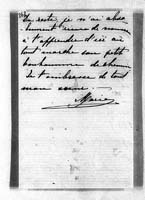 Du reste, je n'ai abso
lument rien de nouveau
à t'apprendre d'ici où
tout marche son petit
bonhomme de chemin
Je t'embrasse de tout
mon cœur.
Marie